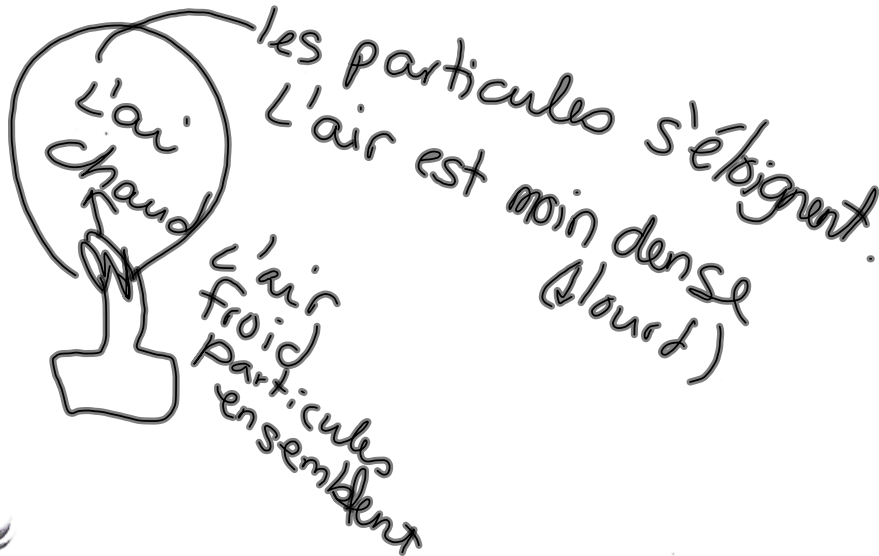 L'ai
chaud
les particules s'éloignent.
L'air est moin dense
(↓lourd)
L'air
froid
particules
ensemblent